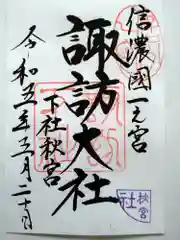 信濃國一之宮
諏訪大社
下社秋宮
令和五年三月二十日
秋宮
社